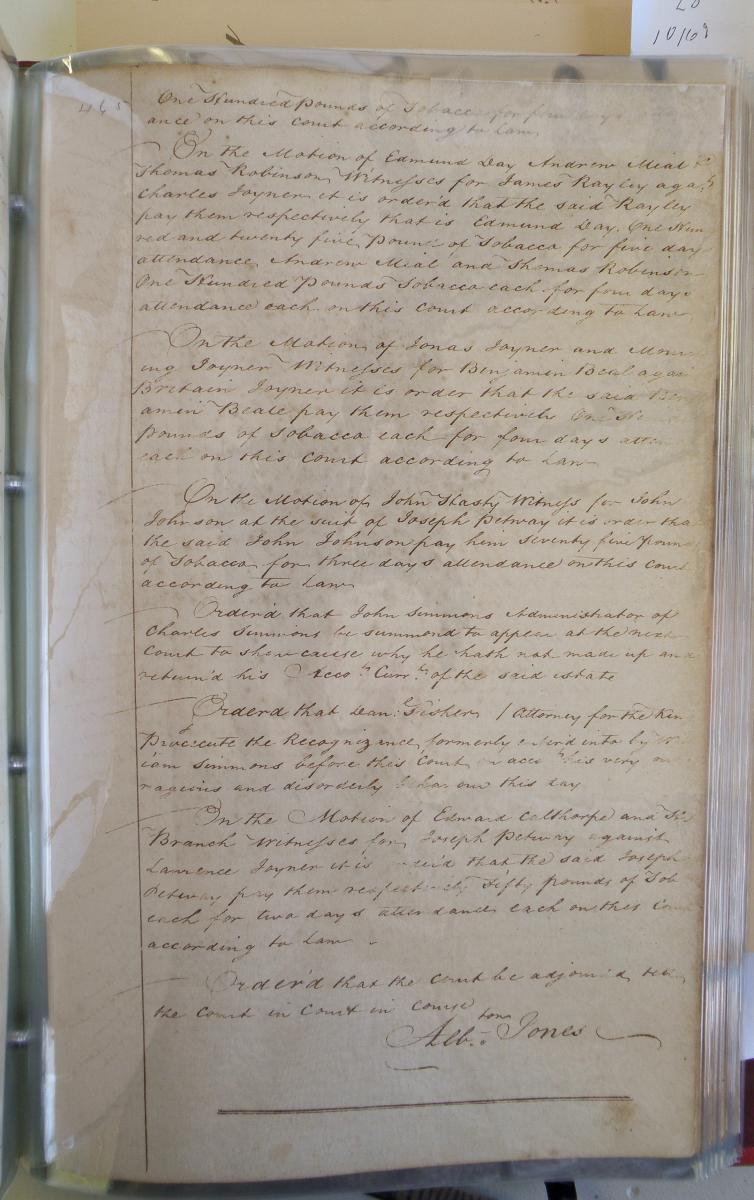 10/68
465
One Hundred Pounds of Tobacco for four days
ance on this Court according to Law
On the Motion of Edmund Day Andrew Mial &
Thomas Robinson Witnesses for James Rayley aga.st
Charles Joyner it is order'd that the said Rayley
pay them respectively that is Edmund Day. One Hun
red and twenty five Pounds of Tobacco for five day
attendance Andrew Mial and Thomas Robinson
One Hundred Pounds Tobacco each for four days
attendance each on this Court according to Law
On the Motion of Jonas Joyner and Moun
ing Joyner Witnesses for Benjamin Beal agai
Britain Joyner it is order that the said Ben
amin Beale pay them respectively One Hu
pounds of Tobacco each for four days atten
each on this Court according to Law
On the Motion of John Hasty Witness for John
Johnson at the suit of Joseph Petway it is order tha
the said John Johnson pay him Seventy five Poun
of Tobacco for three days attendance on this Court
according to Law
Order'd that John Simmons Administrator of
Charles Simmons be summond to appear at the next
Court to shew cause why he hath not made up and
return'd his Acco.ts Curr.ts of the said estate
Orderd that Dan: Fisher Attorney for the Kin
Procecute the Recognizance formerly enter'd into by
iam Simmons before this Court on acco his very
ragious and disorderly behaviour this day
On the Motion of Edward Calthorpe and
Branch Witnesses for Joseph Petway against
Lawrence Joyner it is order'd that the said Joseph
Petway pay them respectively Fifty pounds of Tob
each for two days attendance each on this Court
according to Law
Order'd that the Court be adjourn'd
the Court in Court in Course
Alb:ton Jones